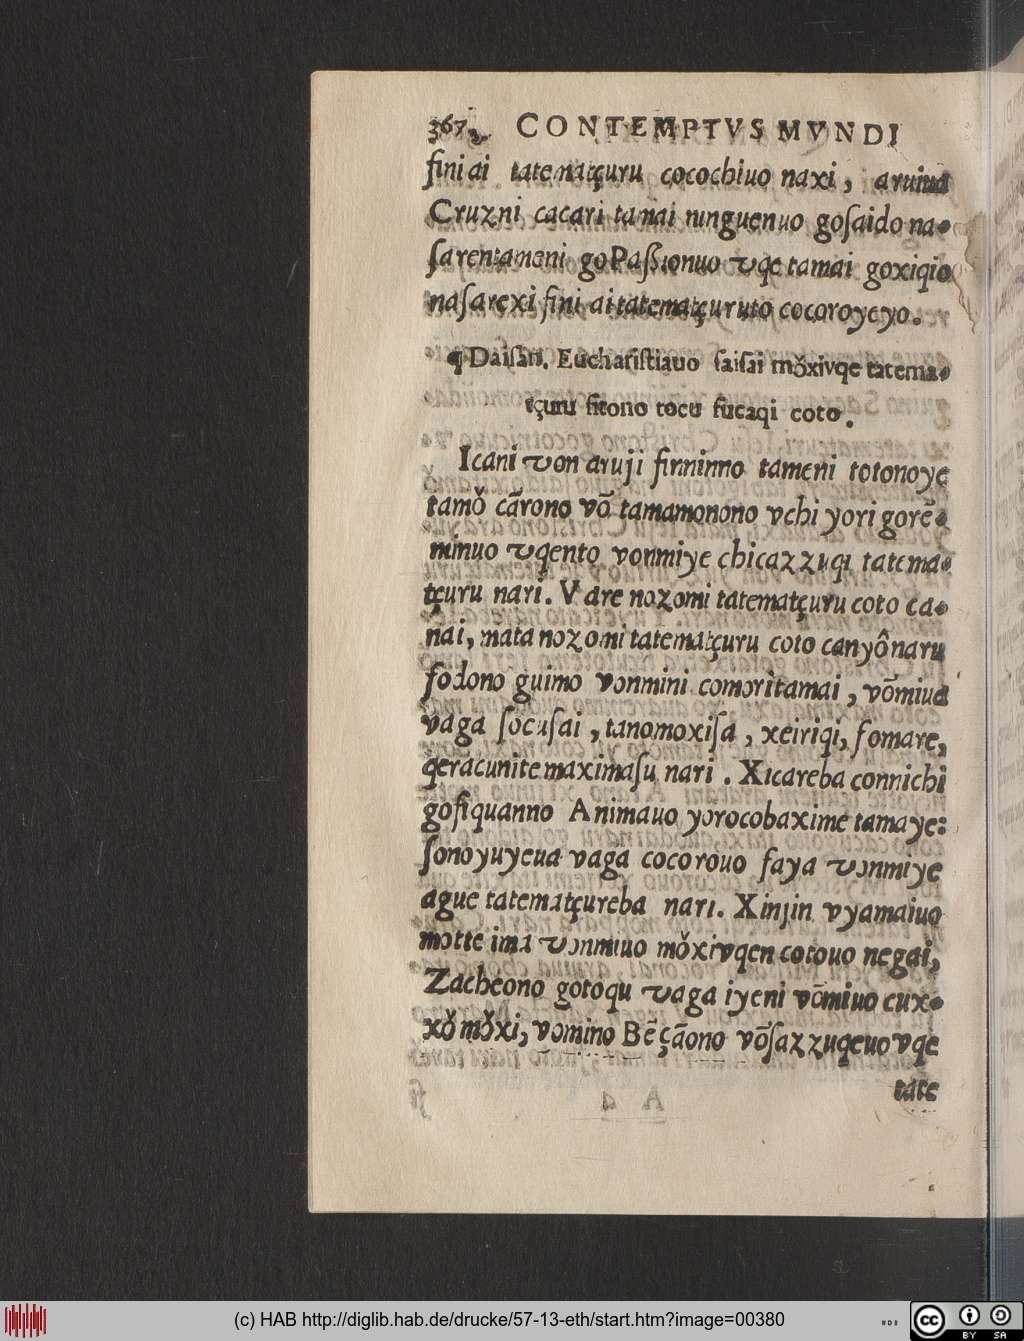 367. CONTEMPTVS MVNDI
fini ai tatematçuru cocochiuo naxi, aruiua
Cruzni cacari tamai ninguenuo goſaido na-
ſarentameni go Paſsionuo vqe tamai goxiqio
naſarexi fini ai tatematçuruto cocoroyeyo.
¶ Daiſan. Euchariſtiauo ſaiſai mǒxivqe tatema-
tçuru fitono tocu fucaqi coto.
Icani von aruji finninno tameni totonoye
tamǒ cãrono võ tamamonono vchi yori gorẽ-
minuo vqento vonmiye chicazzuqi tatema-
tçuru nari. Vare nozomi tatematçuru coto ca-
nai, mata nozomi tatematçuru coto canyônaru
fodono guimo vonmini comoritamai, võmiua
vaga ſocuſai, tanomoxiſa, xeiriqi, fomare,
qeracunite maximaſu nari. Xicareba connichi
gofiquanno Animauo yorocobaxime tamaye:
ſono yuyeua vaga cocorouo faya vonmiye
ague tatematçureba nari. Xinjin vyamaiuo
motte ima vonmiuo mǒxivqen cotouo negai,
Zacheono gotoqu vaga iyeni võmiuo cux-
xǒ mǒxi, vomino Bẽçãono võſazzuqeuo vqe
tate
(c) HAB http://diglib.hab.de/drucke/57-13-eth/start.htm?image=00380
BY SA